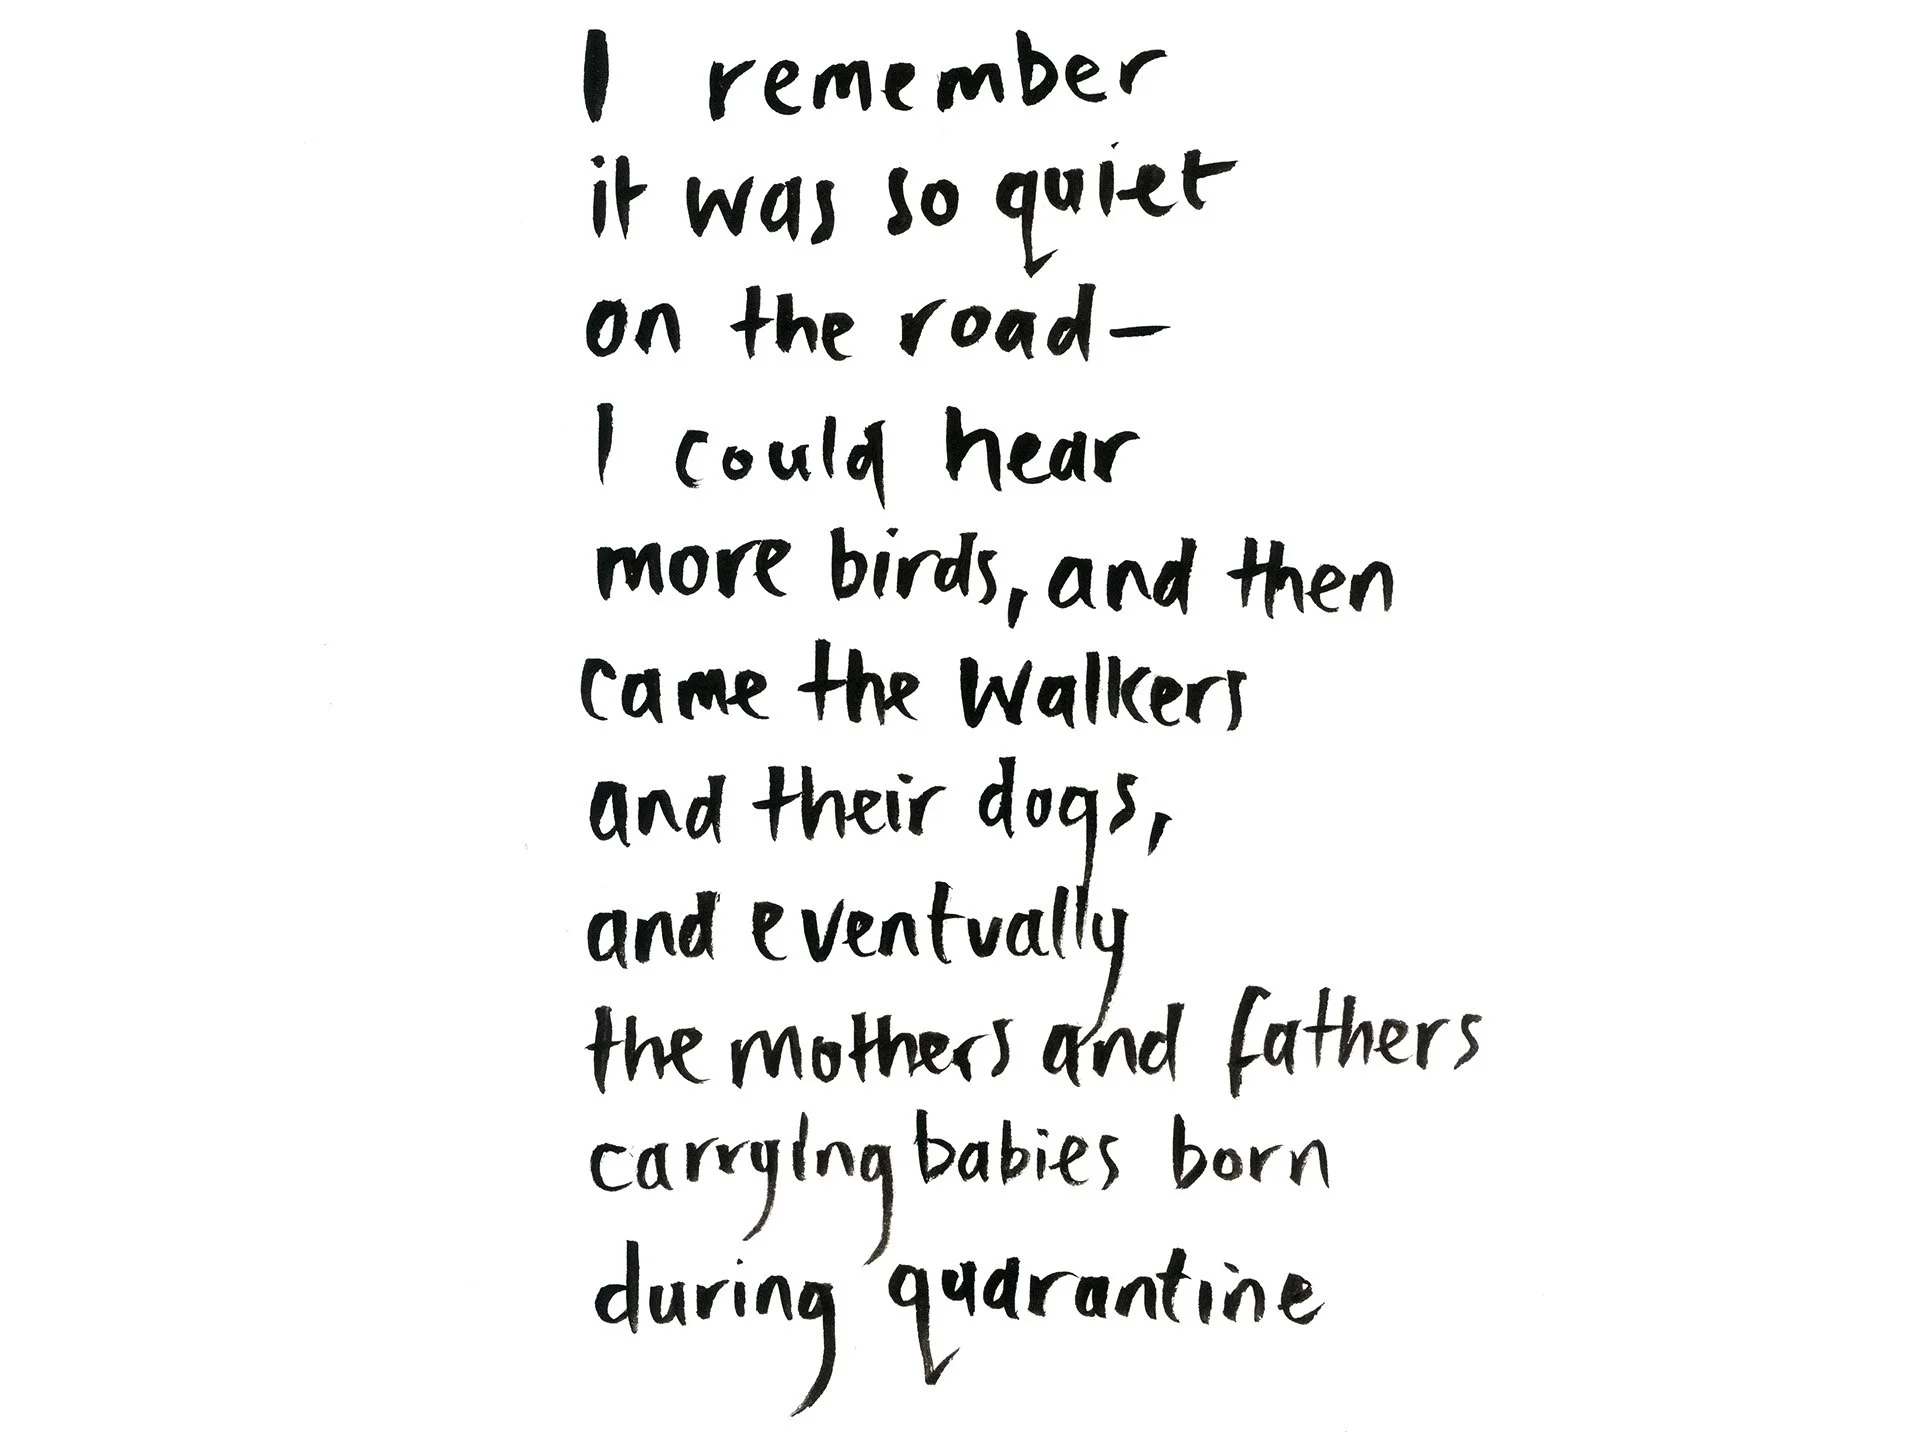 I remember
it was so quiet
on the road—
I could hear
more birds, and then
came the walkers
and their dogs,
and eventually
the mothers and fathers
carrying babies born
during quarantine